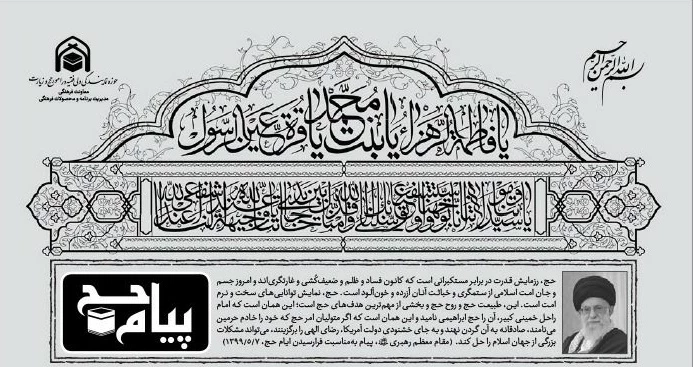 بسم الله الرحمن الرحیم
حوزه نمایندگی ولی فقیه در امور حج و زیارت
معاونت فرهنگی
مدیریت برنامه و محصولات فرهنگی
یا فاطمة الزهراء یا بنت محمد یا قرة عین الرسول
یا سیدتنا و مولاتنا انا توجهنا و استشفعنا و توسلنا بک الی الله و قدمناک بین یدی حاجاتنا یا وجیهة عند الله اشفعی لنا عند الله
پیام حج
حج، رزمایش قدرت در برابر مستکبرانی است که کانون فساد و ظلم و ضعیف‌کُشی و غارتگری‌اند و امروز جسم
و جان امت اسلامی از ستمگری و خباثت آنان آزرده و خون‌آلود است. حج، نمایش توانایی‌های سخت و نرم
امت است. این، طبیعت حج و روح حج و بخشی از مهم‌ترین هدف‌های حج است؛ این همان است که امام
راحل خمینی کبیر، آن را حج ابراهیمی نامید و این همان است که اگر متولیان امر حج که خود را خادم حرمین
می‌نامند، صادقانه به آن گردن نهند و به جای خشنودی دولت آمریکا، رضای الهی را برگزینند، می‌تواند مشکلات
بزرگی از جهان اسلام را حل کند. (مقام معظم رهبری، پیام به‌مناسبت فرارسیدن ایام حج، ۱۳۹۹/۵/۷)